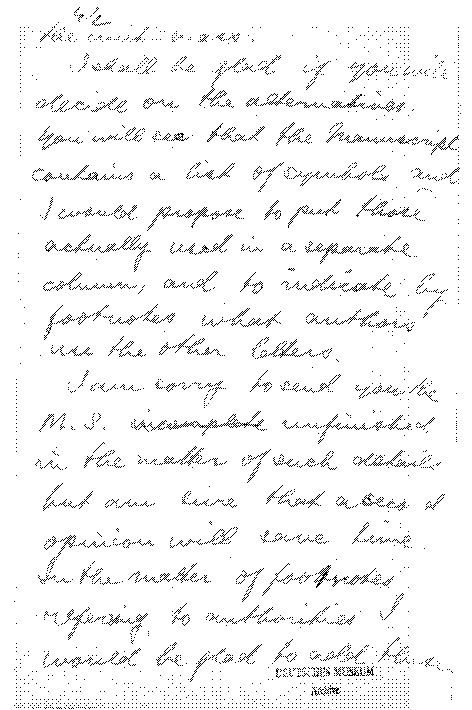 4/2
the unit mass.
I shall be glad if you will
decide on the alternatives.
You will see that the Manuscript
contains a list of symbols and
I would propose to put those
actually used in a separate
column, and to indicate by
footnotes what authors
use the other letters.
I am sorry to send you the
M.S. incomplete unfinished
in the matter of such details
but am sure that a second
opinion will save time.
In the matter of footnotes
refering to authorities I
would be glad to add them
DEUTSCHES MUSEUM
Archiv